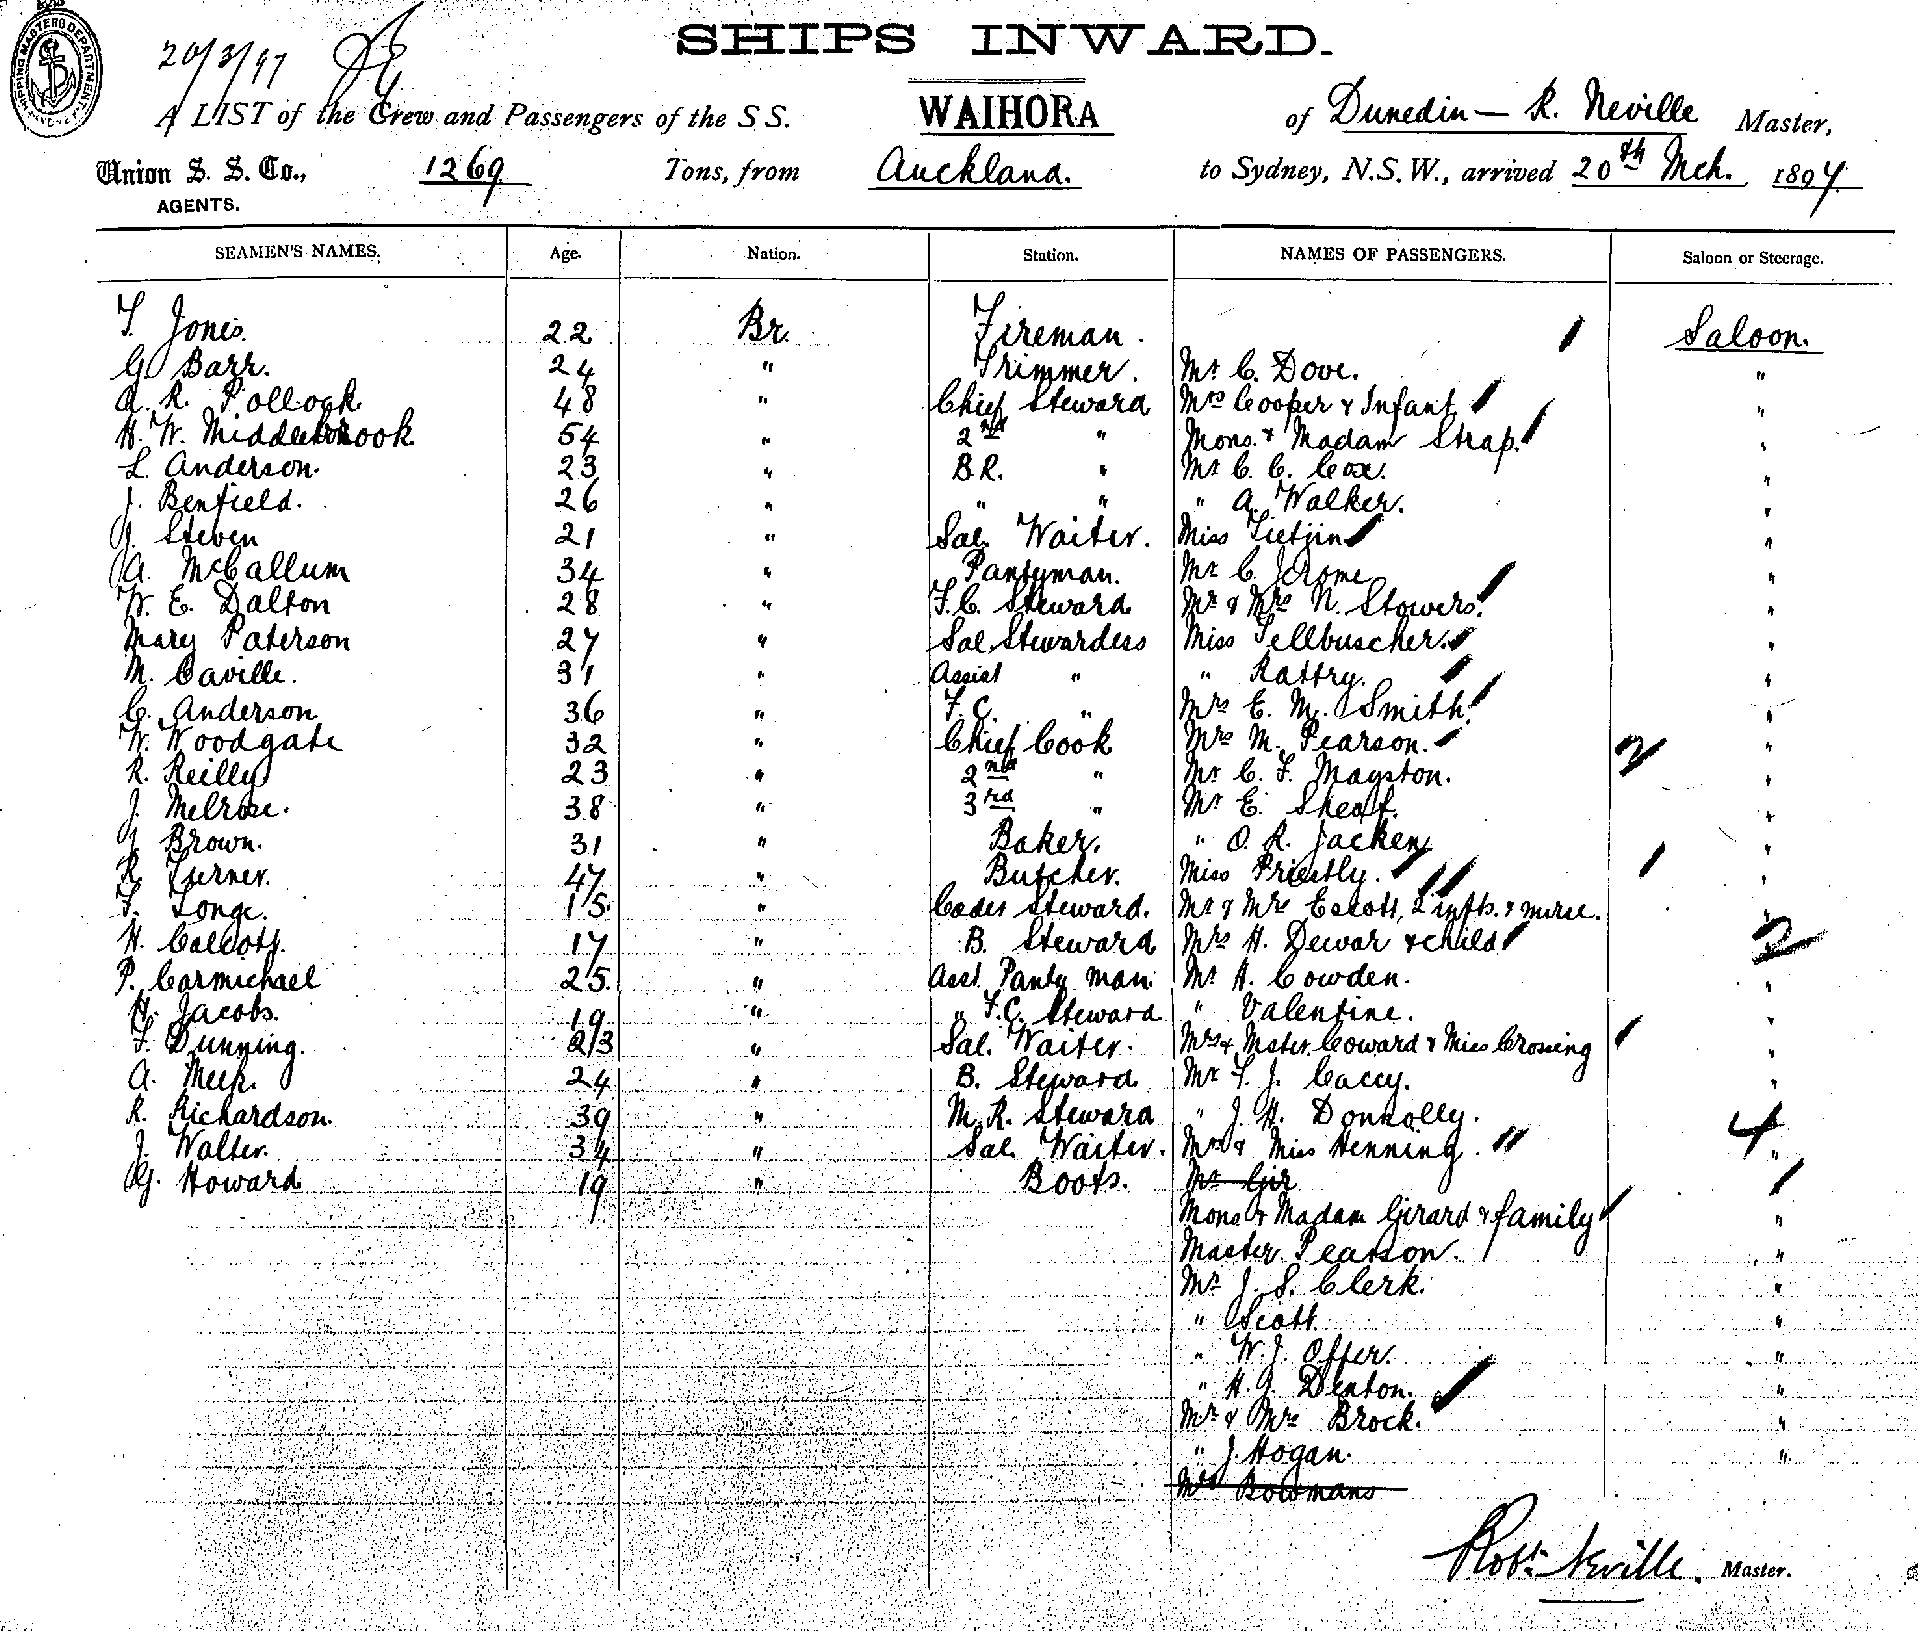 SHIPS INWARD.
20/3/97
A LIST of the Crew and Passengers of the S S. WAIHORA of Dunedin — R. Neville Master,
Union S. S. Co., 1269 Tons, from Auckland. to Sydney, N.S.W., arrived 20th Mch. 1897
AGENTS.
SEAMEN'S NAMES. Age. Nation. Station. NAMES OF PASSENGERS. Saloon or Steerage.
T. Jones. 22 Br. Fireman. Saloon.
G. Barr. 24 " Trimmer. Mr C. Dove. "
A. R. Pollock 48 " Chief Steward Mrs Cooper & Infant "
H. W. Middlebrook 54 " 2nd " Mons. & Madam Strap. "
L. Anderson. 23 " B.R. " Mr C. C. Cox. "
J. Benfield. 26 " " " " A. Walker. "
J. Steven 21 " Sal. Waiter. Miss Tietjin "
A. McCallum 34 " Pantyman. Mr C. Jerome "
W. E. Dalton 28 " F.C. Steward Mr & Mrs N. Stowers. "
Mary Paterson 27 " Sal. Stewardess Miss Tellbuscher. "
M. Caville. 31 " Assist " " Rattry. "
C. Anderson 36 " F.C. " Mrs E. M. Smith "
W. Woodgate 32 " Chief Cook Mrs M. Pearson. 2 "
R. Reilly 23 " 2nd " Mr C. F. Mayston. "
J. Melrose. 38 " 3rd " Mr E. Sheaf. "
J. Brown. 31 " Baker. " O. R. Jacken "
R. Turner. 47 " Butcher. Miss Priestly. "
F. Longe. 15 " Cader Steward. Mr & Mrs Escott, 2 infts. & nurse. "
H. Calcott. 17 " B. Steward Mrs H. Dewar & child 2
P. Carmichael 25. " Asst. Panty man Mr H. Cowden. "
H. Jacobs. 19 " " F.C. Steward " Valentine. "
F. Dunning. 23 " Sal. Waiter. Mrs & Mster. Coward & Miss Crossing "
A. Meek. 24 " B. Steward Mr T. J. Caccy. "
R. Richardson. 39 " M. R. Steward " J. H. Donnolly. 4
J. Walter. 34 " Sal. Waiter. Mrs & Miss Henning. "
G. Howard 19 " Boots. Mr Gir
Mons & Madam Girard & family "
Master Pearson. "
Mr J. S. Clerk. "
" Scott "
" W. J. Offer. "
" H. J. Denton. "
Mr & Mrs Brock. "
" J. Hogan. "
Mrs Bowmans
Robt. Neville. Master.